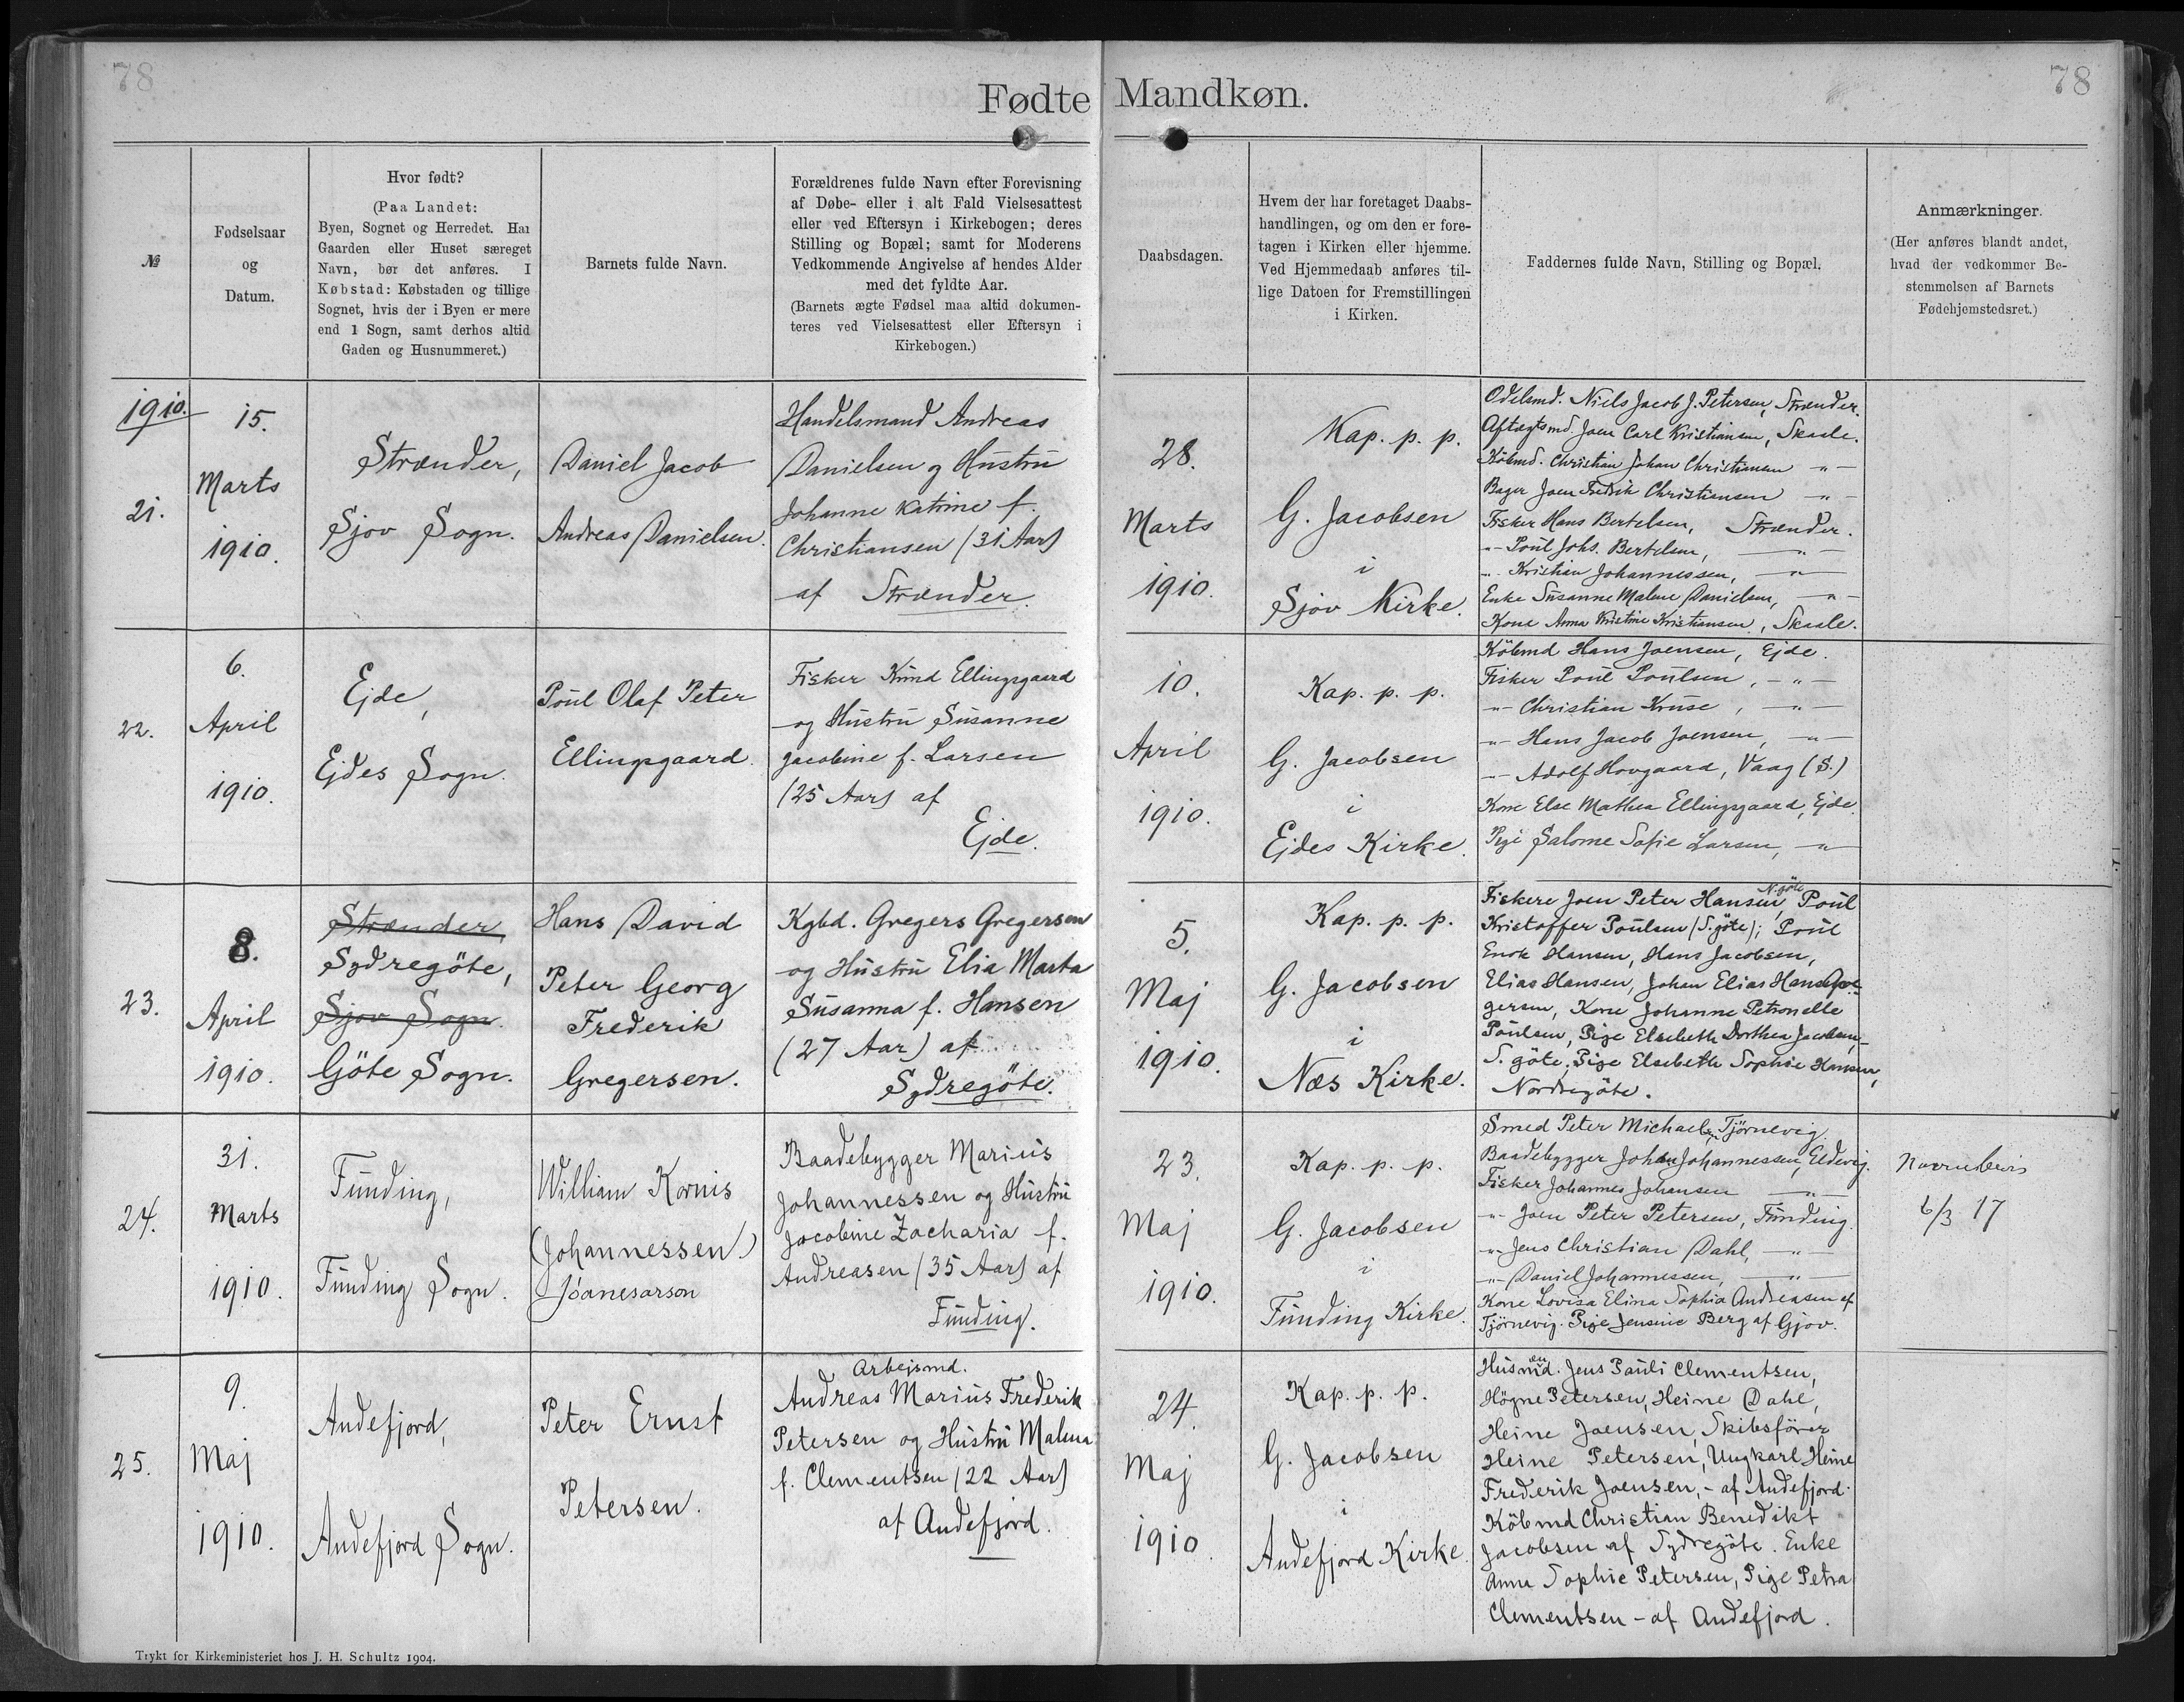 78
78
Fødte Mandkøn.
№
Fødselsaar
og
Datum.
Hvor født?
(Paa Landet:
Byen, Sognet og Herredet. Har
Gaarden eller Huset særeget
Navn, bør det anføres. I
Købstad: Købstaden og tillige
Sognet, hvis der i Byen er mere
end 1 Sogn, samt derhos altid
Gaden og Husnummeret.)
Barnets fulde Navn.
Forældrenes fulde Navn efter Forevisning
af Døbe- eller i alt Fald Vielsesattest
eller ved Eftersyn i Kirkebogen; deres
Stilling og Bopæl; samt for Moderens
Vedkommende Angivelse af hendes Alder
med det fyldte Aar.
(Barnets ægte Fødsel maa altid dokumen-
teres ved Vielsesattest eller Eftersyn i
Kirkebogen.)
Daabsdagen.
Hvem der har foretaget Daabs-
handlingen, og om den er fore-
tagen i Kirken eller hjemme.
Ved Hjemmedaab anføres til-
lige Datoen for Fremstillingen
i Kirken.
Faddernes fulde Navn, Stilling og Bopæl.
Anmærkninger.
(Her anføres blandt andet,
hvad der vedkommer Be-
stemmelsen af Barnets
Fødehjemstedsret.)
1910.
21.
15.
Marts
1910.
Strænder,
Sjov Sogn.
Daniel Jacob
Andreas Danielsen.
Handelsmand Andreas
Danielsen og Hustru
Johanne Katrine f.
Christiansen (31 Aar)
af Strænder.
28.
Marts
1910.
Kap. p. p.
G. Jacobsen
i
Sjov Kirke.
Odelsmd. Niels Jacob J. Petersen, Strænder.
Aftægtsmd. Joen Carl Kristiansen, Skaale.
Købmd. Christian Johan Christiansen -"-
Bager Joen Fredrik Christiansen -"-
Fisker Hans Bertelsen, Strænder.
-"- Poul Johs. Bertelsen, -"-
-"- Kristian Johannessen, -"-
Enke Susanne Malene Danielsen, -"-
Kone Anna Kristine Kristiansen, Skaale.
22.
6.
April
1910.
Ejde,
Ejdes Sogn.
Poul Olaf Peter
Ellingsgaard.
Fisker Knud Ellingsgaard
og Hustru Susanne
Jacobine f. Larsen
(25 Aar) af
Ejde.
10.
April
1910.
Kap. p. p.
G. Jacobsen
i
Ejdes Kirke.
Købmd Hans Joensen, Ejde.
Fisker Poul Poulsen, -"-
-"- Christian Kruse, -"-
-"- Hans Jacob Joensen, -"-
-"- Adolf Hovgaard, Vaag (S.)
Kone Else Mathea Ellingsgaard, Ejde.
Pige Salome Sofie Larsen, -"-
23.
8.
April
1910.
Strænder,
Sydregöte,
Sjov Sogn.
Göte Sogn.
Hans David
Peter Georg
Frederik
Gregersen.
Kgbd. Gregers Gregersen
og Hustru Elia Marta
Susanna f. Hansen
(27 Aar) af
Sydregöte.
5.
Maj
1910.
Kap. p. p.
G. Jacobsen
i
Næs Kirke.
Fiskere Joen Peter Hansen, N.göte Poul
Kristoffer Poulsen (S.göte); Poul
Enok Hansen, Hans Jacobsen,
Elias Hansen, Johan Elias Hans Gre-
gersen, Kone Johanne Petronelle
Poulsen, Pige Elsebeth Dorthea Jacobsen,-
S. göte, Pige Elsebeth Sophie Hansen,
Nordregöte.
24.
31.
Marts
1910.
Funding,
Funding Sogn.
William Kornis
(Johannessen)
Jóanesarson
Baadebygger Marius
Johannessen og Hustru
Jacobine Zacharia f.
Andreasen (35 Aar) af
Funding.
23.
Maj
1910.
Kap. p. p.
G. Jacobsen
i
Funding Kirke.
Smed Peter Michaelsen, Tjörnevig.
Baadebygger Johan Johannessen, Eldevig.
Fisker Johannes Johansen -"-
-"- Joen Peter Petersen, Funding.
-"- Jens Christian Dahl, -"-
-"- Daniel Johannessen, -"-
Kone Lovisa Elina Sophia Andreasen af
Tjörnevig. Pige Jensine Berg af Gjov.
Navnebevis
6/3 17
25.
9.
Maj
1910.
Andefjord,
Andefjord Sogn.
Peter Ernst
Petersen.
Arbejsmd.
Andreas Marius Frederik
Petersen og Hustru Malena
f. Clementsen (22 Aar)
af Andefjord.
24.
Maj
1910.
Kap. p. p.
G. Jacobsen
i
Andefjord Kirke.
Husmænd. Jens Pauli Clementsen,
Högne Petersen, Heine Dahl,
Heine Joensen, Skibsförer
Heine Petersen, Ungkarl Heine
Frederik Joensen,- af Andefjord.
Köbmd Christian Benedikt
Jacobsen af Sydregöte. Enke
Anne Sophie Petersen, Pige Petra
Clementsen - af Andefjord.
Trykt for Kirkeministeriet hos J. H. Schultz 1904.